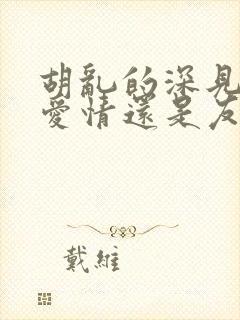 胡亂的深見
愛情還是友
戴維